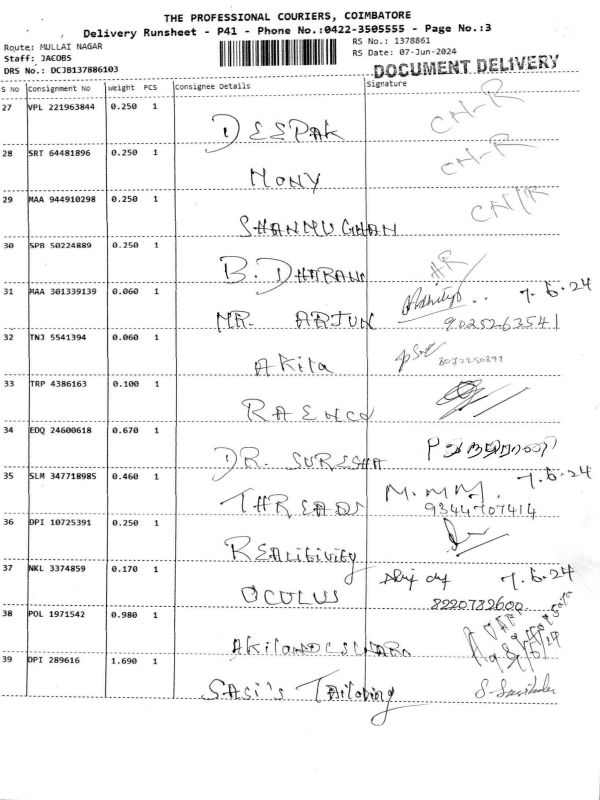 THE PROFESSIONAL COURIERS, COIMBATORE
Delivery Runsheet - P41 - Phone No.:0422-3505555 - Page No.:3
Route: MULLAI NAGAR RS No.: 1378861
Staff: JACOBS RS Date: 07-Jun-2024
DRS No.: DCJB137886103 DOCUMENT DELIVERY
S No Consignment No Weight PCS Consignee Details Signature
27 VPL 221963844 0.250 1 DEEPAK CN-R
28 SRT 64481896 0.250 1 MONY CN-R
29 MAA 944910298 0.250 1 SHANMUGHAN CN/R
30 SPB 50224889 0.250 1 B. DHARANI HR
31 MAA 301339139 0.060 1 MR. ARJUN Adhitya .. 7.6.24
9025263541
32 TNJ 5541394 0.060 1 Akila
33 TRP 4386163 0.100 1 RAENCO
34 EDQ 24600618 0.670 1 DR. SURESHA
35 SLM 347718985 0.460 1 THREADS M.MM. 7.6.24
9344707414
36 DPI 10725391 0.250 1 REALITIVITY
37 NKL 3374859 0.170 1 OCULUS 7.6.24
8220782600
38 POL 1971542 0.980 1
39 DPI 289616 1.690 1 SASI'S Tailoring